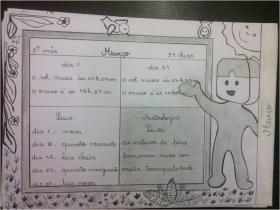 3º mês Março 31 dias
dia 1
o sol nasce às 05h.09m
o ocaso é às 18h.21m.
dia 31
o sol nasce às
o ocaso é às
Lua
dia 1 - nova
dia 8 - quarto crescente
dia 16 - lua cheia
dia 24 - quarto minguante
dia 30 - lua nova
Astrologia
Peixes
os nativos de peixes
funcionam neste com
muita tranquilidade
Março